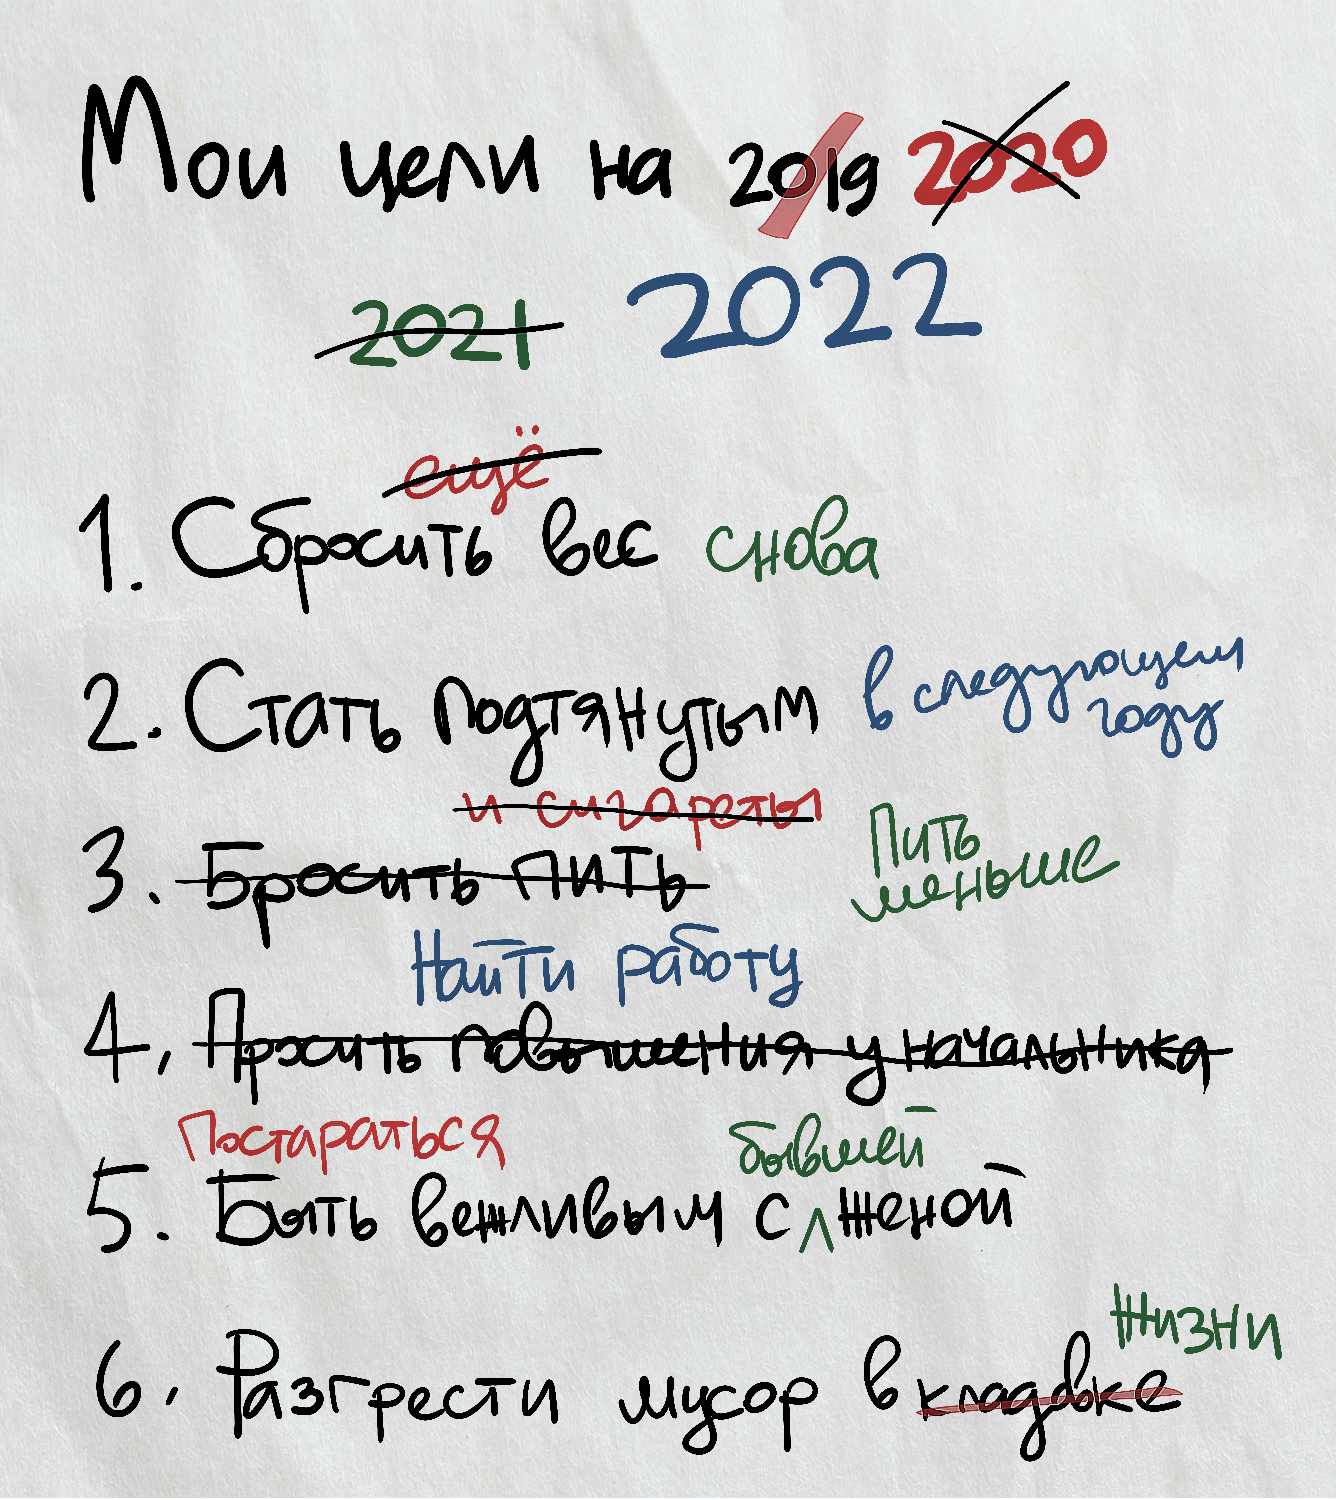 Мои цели на 2019 2020
2021 2022
ещё
1. Сбросить вес снова
2. Стать подтянутым в следующем
году
и сигареты
3. Бросить пить Пить
меньше
Найти работу
4. Просить повышения у начальника
Постараться бывшей
5. Быть вежливым с женой
жизни
6. Разгрести мусор в кладовке